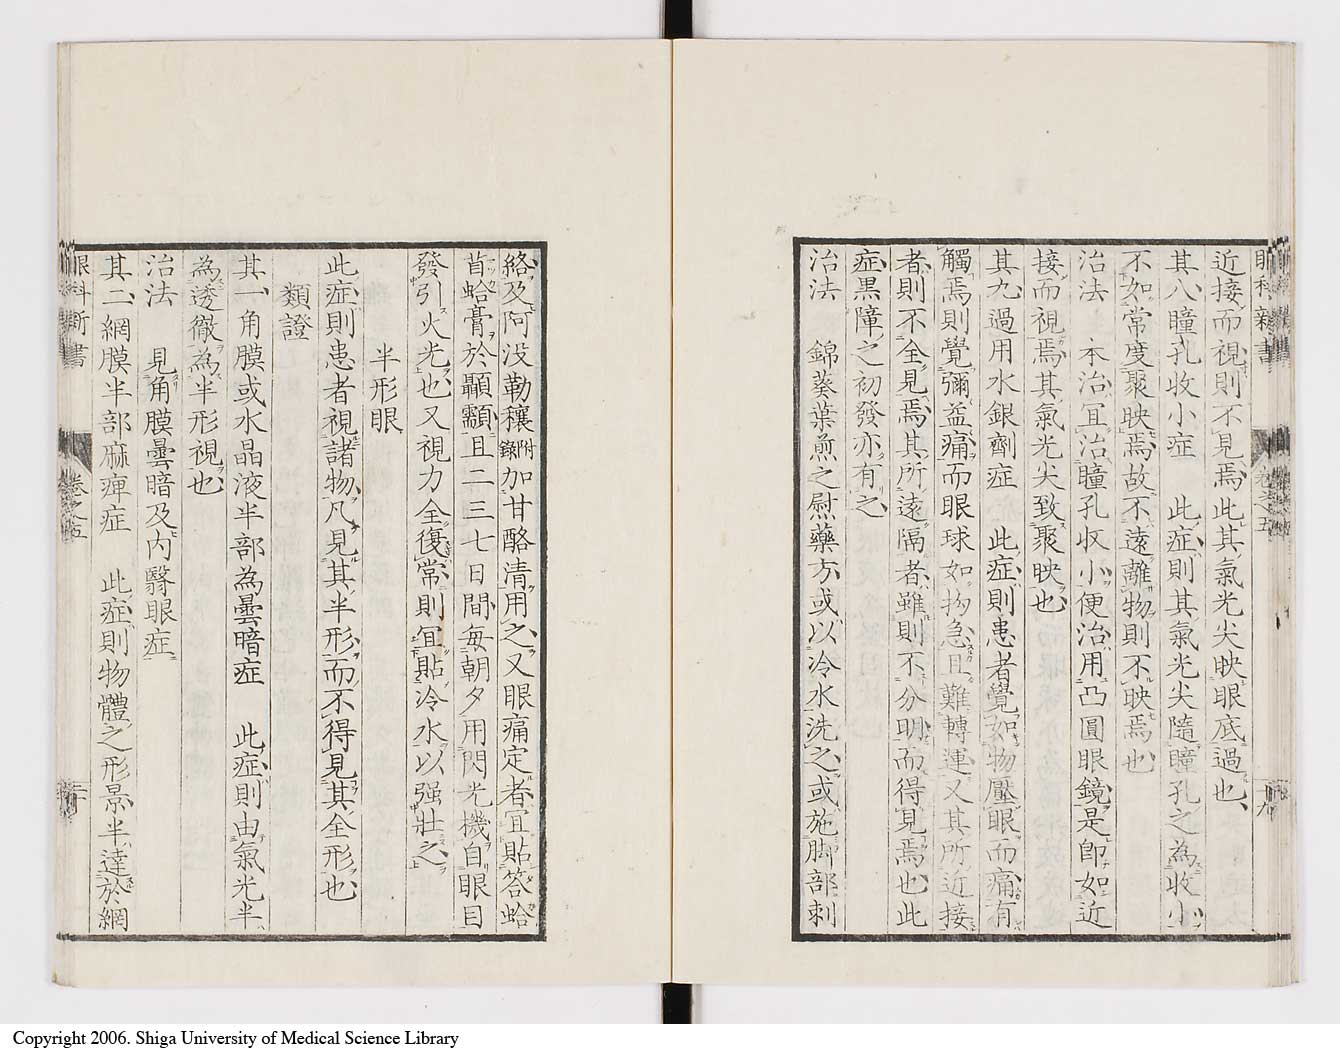 眼科新書 卷之五 九
近接而視則不見焉此其氣光尖映眼底過也
其八瞳孔收小症 此症則其氣光尖隨瞳孔之為收小
不如常度聚映焉故不遠離物則不映焉也
治法 本治宜治瞳孔收小便治用凸圓眼鏡是卽如近
接而視焉其氣光尖致聚映也
其九過用水銀劑症 此症則患者覺如物壓眼而痛有
觸焉則覺彌益痛而眼球如拘急且難轉運又其所近接
者則不全見焉其所遠隔者雖則不分明而得見焉也此
症黒障之初發亦有之
治法 錦葵葉煎之慰藥方或以冷水洗之或施脚部刺
絡及阿没勒穰附錄加甘酪清用之又眼痛定者宜貼答蛤
蛤膏於顳顬且二三七日間毎朝夕用閃光機自眼目
發引火光也又視力全復常則宜貼冷水以强壯之
半形眼
此症則患者視諸物凡見其半形而不得見其全形也
類證
其一角膜或水晶液半部為曇暗症 此症則由氣光半
為透徹為半形視也
治法 見角膜曇暗及内翳眼症
其二網膜半部麻痺症 此症則物體之形景半達於網
眼科新書 卷之五
Copyright 2006. Shiga University of Medical Science Library